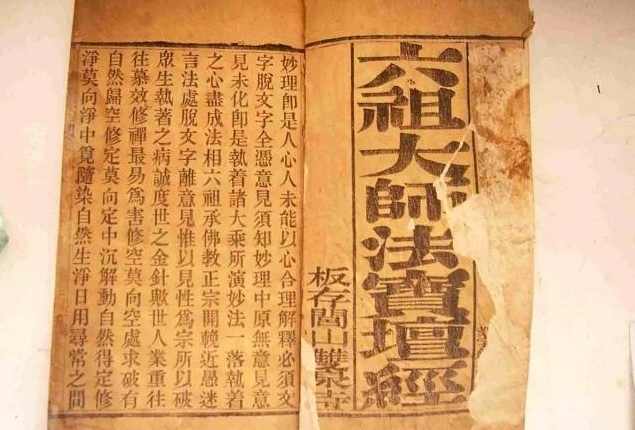 六祖大師法寶壇經
板存閭山雙泉寺
妙理卽是人心人未能以心合理解釋必須文
字脫文字全憑意見須知妙理中原無意見意
見未化卽是執着諸大乘所演妙法一落執着
之心盡成法相六祖承佛教正宗開輓近愚迷
言法處脫文字離意見惟以見性爲宗所以破
眾生執著之病誠度世之金針歎世人業重往
往慕效修禪最易爲害修空莫向空處求破有
自然歸空修定莫向定中沉解動自然得定修
淨莫向淨中覓隨染自然生淨日用尋常之間